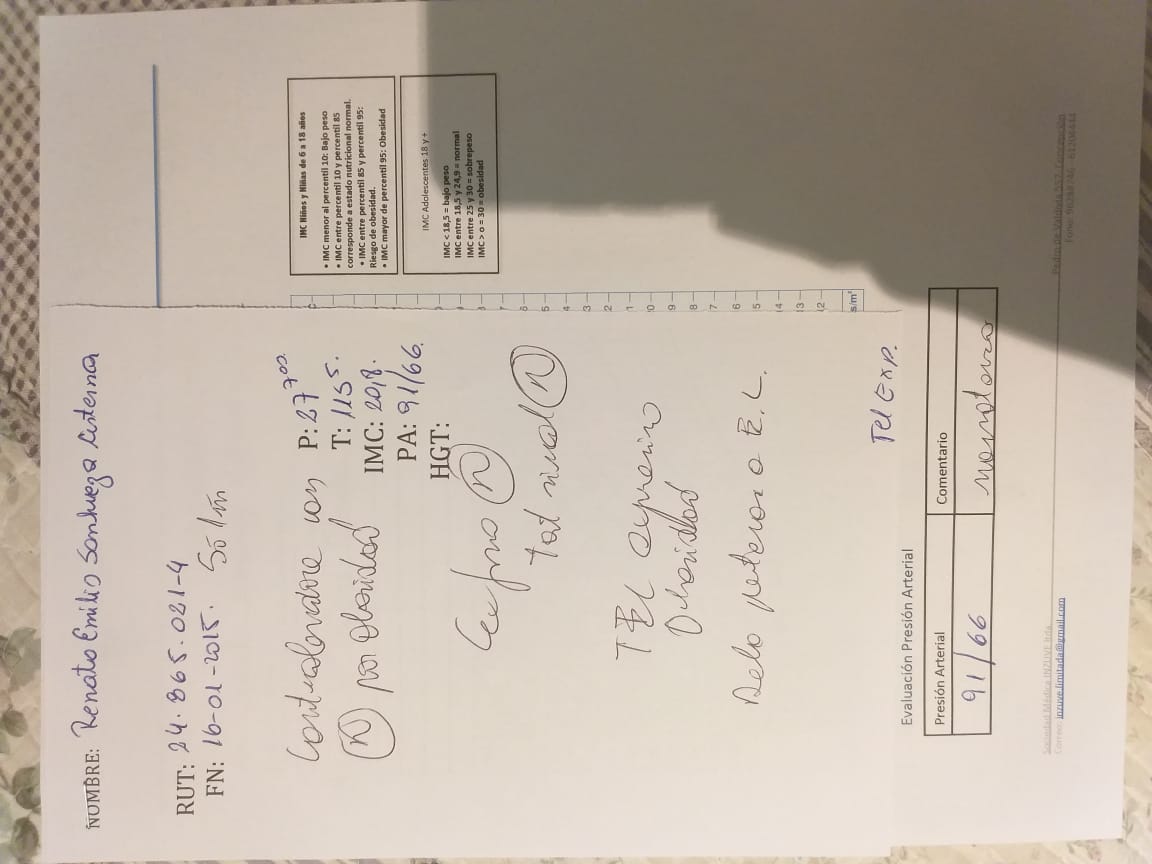 NOMBRE: Renato Emilio Sanhueza Cisterna
RUT: 24.865.021-4
FN: 16-01-2015.
Controlandore con
(N) por Obesidad
P: 27 700.
T: 115 5.
IMC: 20,8.
PA: 91/66.
HGT:
(N)
(N)
TEL expresivo
Obesidad
E.L.
Tel Exp.
IMC Niños y Niñas de 6 a 18 años
• IMC menor al percentil 10: Bajo peso
• IMC entre percentil 10 y percentil 85
corresponde a estado nutricional normal.
• IMC entre percentil 85 y percentil 95:
Riesgo de obesidad.
• IMC mayor de percentil 95: Obesidad
IMC Adolescentes 18 y +
IMC < 18,5 = bajo peso
IMC entre 18,5 y 24,9 = normal
IMC entre 25 y 30 = sobrepeso
IMC > o = 30 = obesidad
s/m²
Evaluación Presión Arterial
Presión Arterial
Comentario
91/66
normotenso
Sociedad Médica INZUVE ltda.
Correo: inzuve.limitada@gmail.com
Pedro de Valdivia 557, Concepción